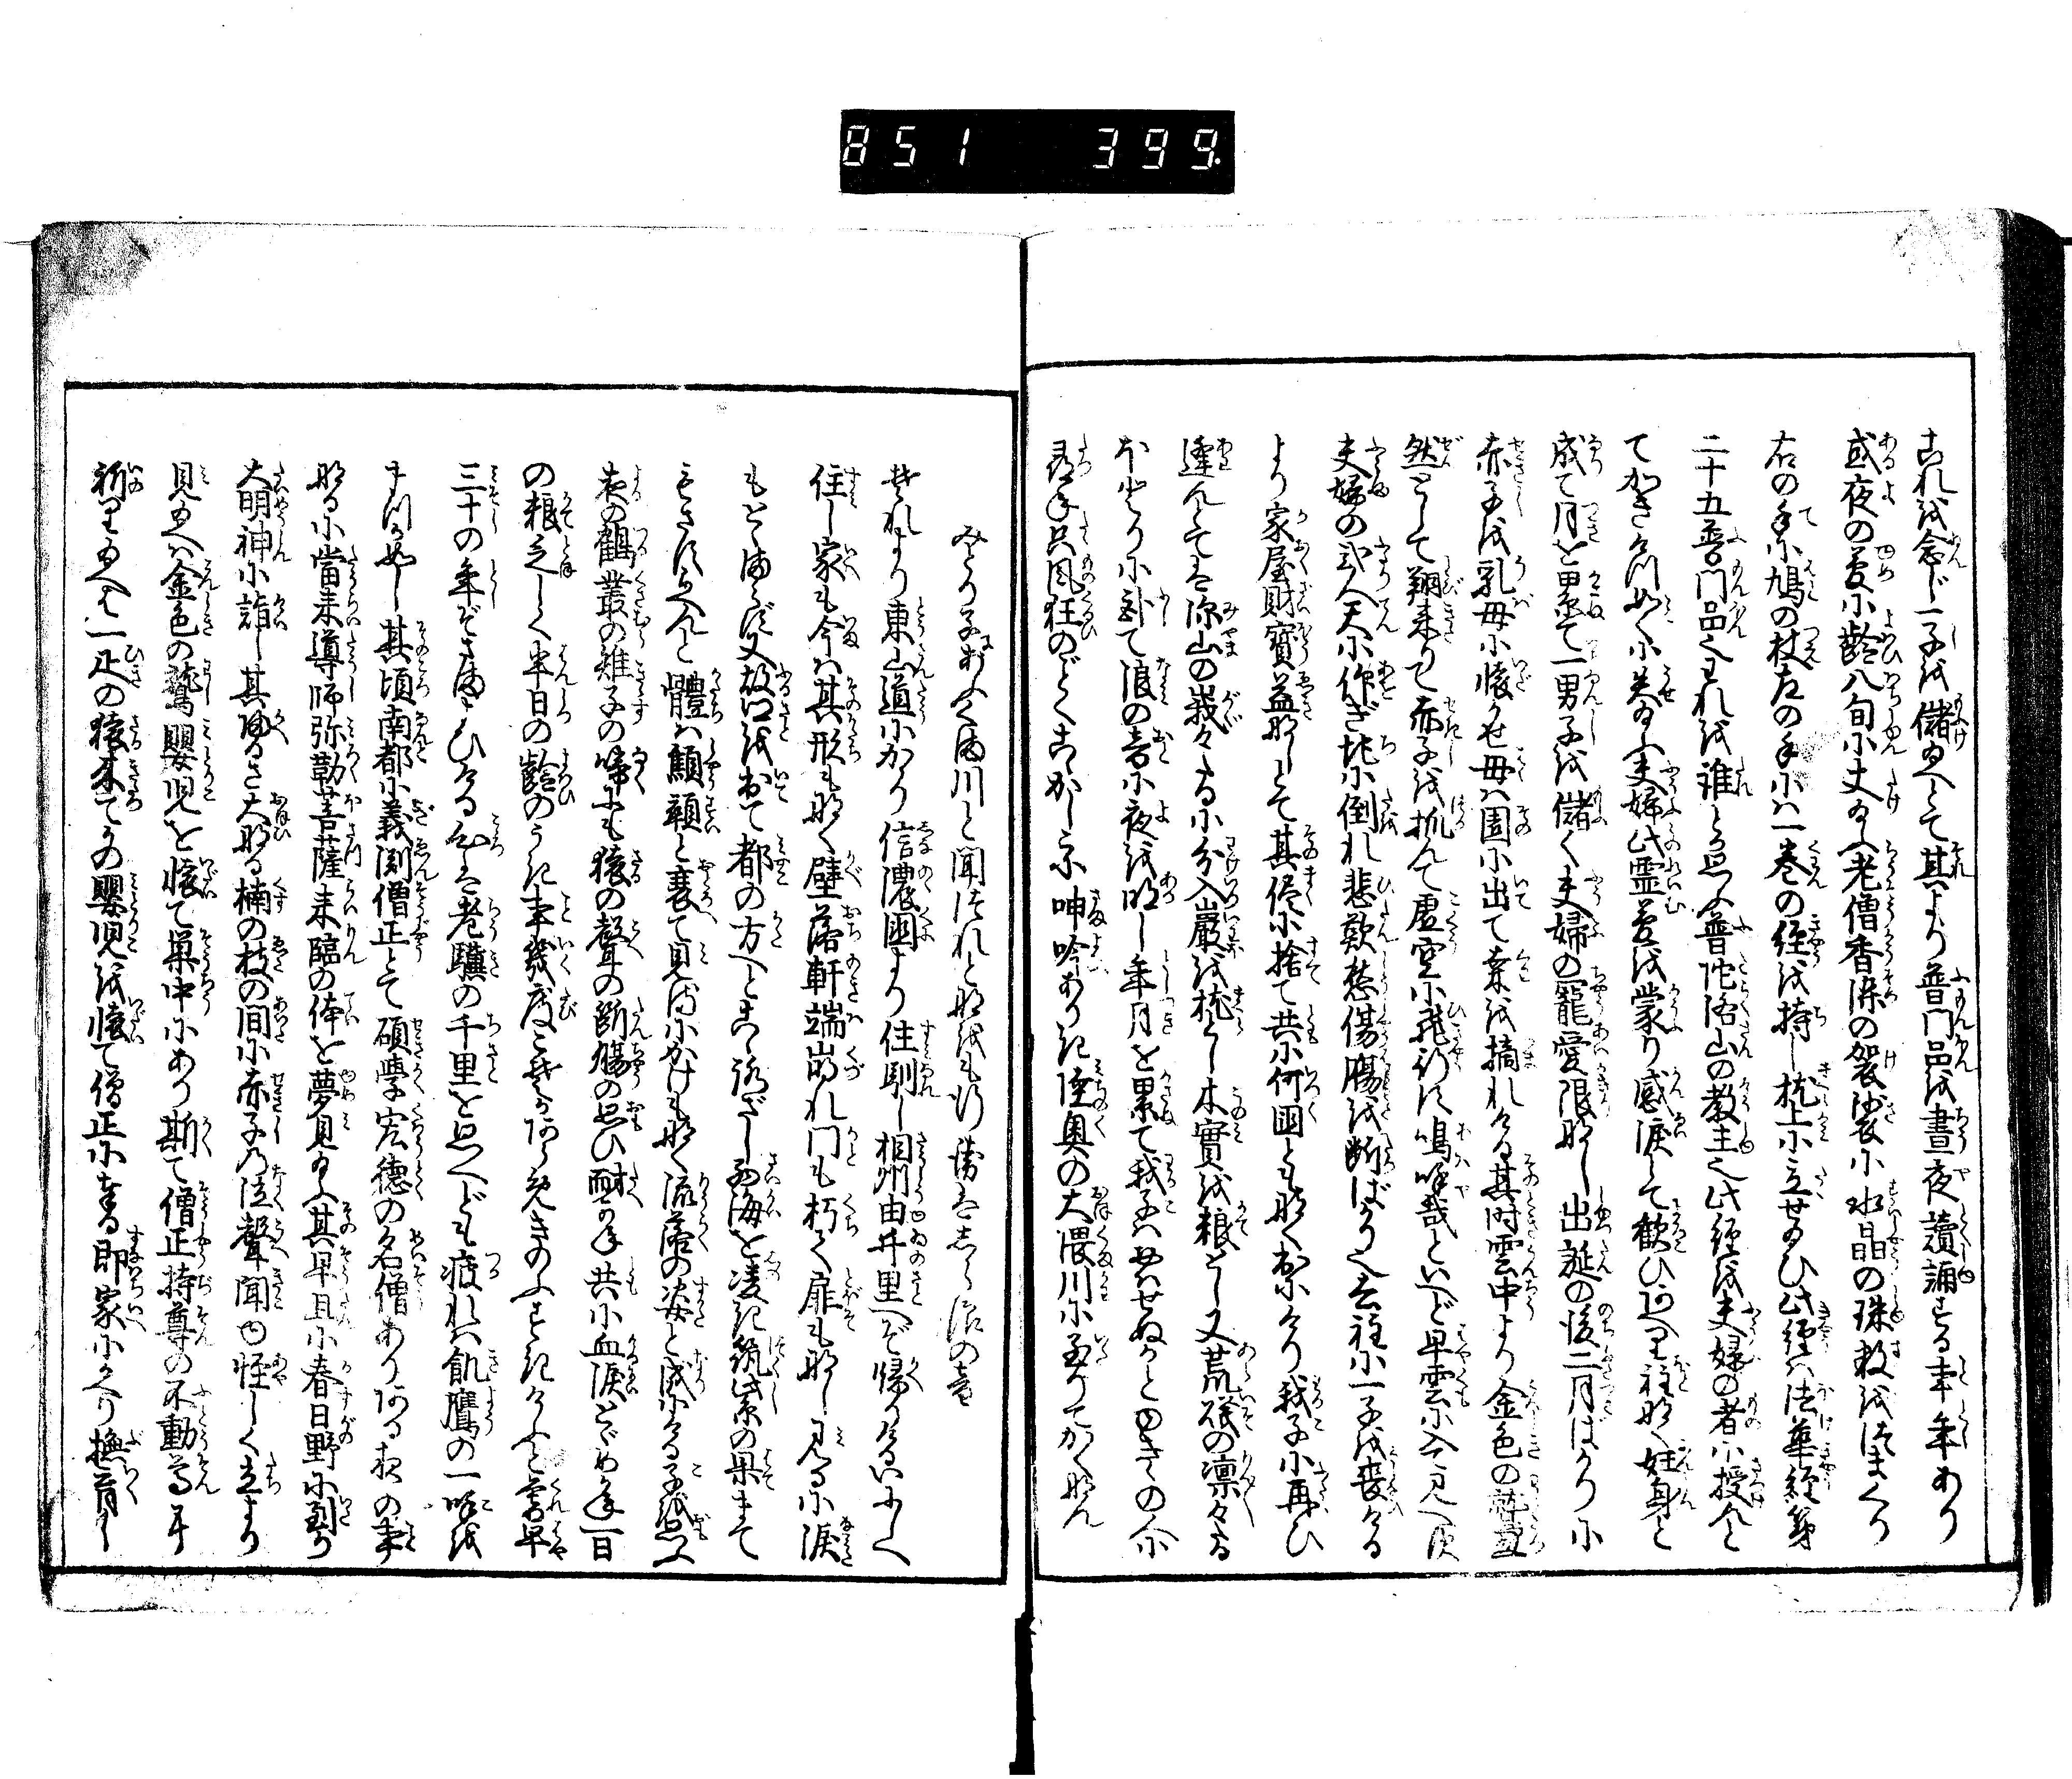 851 399.
これを念じ一子を儲給へとて其より普門品を晝夜讀誦する事年あり
或夜の夢に齡八旬に丈給ふ老僧香染の袈裟に水晶の珠数をつまくり
右の手に鳩の杖左の手には一巻の經を持し枕上に立せ給ひ此經は法華經第
二十五普門品也われを誰とか思ふ普陀洛山の教主也此經を夫婦の者に授んと
てかきけつ如くに失給ふ夫婦此霊夢を蒙り感涙して歓び
程なく妊身と
成て月を累て一男子を儲く夫婦の寵愛限なし出誕の後二月ばかりに
赤子を乳母に懐かせ母は園に出て桑を摘れける其時雲中より金色の鷲
然として翔来りて赤子を抓んて虚空に飛行す嗚呼哉といへど早雲に入見へず
夫婦の二人天に仰ぎ地に倒れ悲歎愁傷膓を断ばかり也去程に一子を喪ける
より家屋財寶益なしとて其侭に捨て共に何國ともなく出にけり我子に再び
逢んとては深山の峩々たるに分入巖を枕とし木實を粮とし又荒礒の凛々たる
ほとりに卧て浪の音に夜を明し年月を累て我子はおはせぬかとゆきての
尋ね只風狂のごとくこがれ
呻吟ありき陸奥の大隈川に至りてかくなん
みとり子にあふくま川と聞つれと
それより東山道にかゝり信濃國より住馴し相州由井里へぞ帰りけるいにしへ
住し家も今は其形もなく壁落軒端崩れ門も朽て扉もなし見るに涙
もとゞまらず又故郷を出て都の方へとこゝろざし西海を凌ぎ筑紫の果まで
もさすらへんと體は顦顇と衰て見るにかげもなく流落の姿と成にける子を思ふ
夜の鶴叢の雉子の啼にも猿の聲の断膓の思ひ耐かね共に血涙とゞめかね一日
の粮乏しく半日の齡のうき事幾度こそかはらねきのふと過けふと暮早
三十の年ぞさまよひける心は老驥の千里を思へども疲れは飢鷹の一呼を
まつが如し其頃南都に義渕僧正とて碩學宏德の名僧ありある夜の事
なるに當来導師弥勒菩薩来臨の体を夢見給ふ其早旦に春日野に到り
大明神に詣し其歸るさ大なる楠の枝の間に赤子の泣聲聞ゆ怪しく立より
見給へは金色の鷲嬰児を懐て巣中にあり斯て僧正持尊の不動尊に
祈り給へば一疋の猿来てかの嬰児を懐て僧正に奉る即家にかへり撫育し